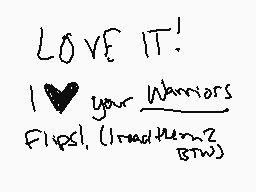 LOVE IT!
I ♥ your Warriors
Flips!, (I read them 2
BTW)